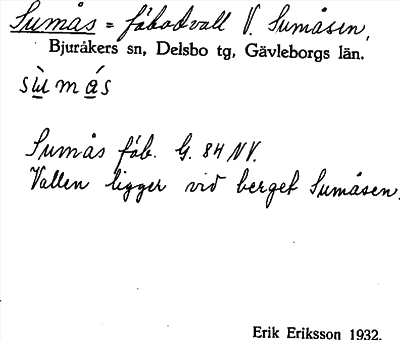 Sumås = fäbodvall V. Sumåsen,
Bjuråkers sn, Delsbo tg, Gävleborgs län.
sùmás
Sumås fäb. G. 84 NV.
Vallen ligger vid berget Sumåsen.
Erik Eriksson 1932.